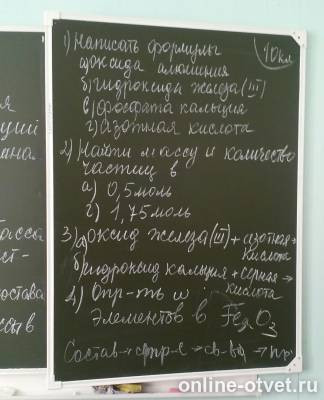 10кл
1) Написать формулы
а) оксида алюминия
б) гидроксида железа (III)
в) фосфата кальция
г) азотная кислота
2) Найти массу и количество
частиц в
а) 0,5 моль
б) 1,75 моль
3) а) оксид железа (III) + азотная →
кислота
б) гидроксид кальция + серная →
кислота
4) Опр-ть ω
Элементов в Fe2O3
Состав →
я
ссы
ст-
остава
в
online-otvet.ru